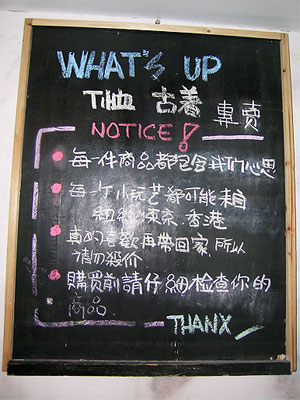 WHAT'S UP
T恤 古着 專賣
NOTICE!
每一件商品都包含我们心思
每一个小玩艺都可能来自
紐約.東京.香港
真的喜歡再帶回家,所以
請勿殺价
購買前請仔細检查你的
商品
THANX